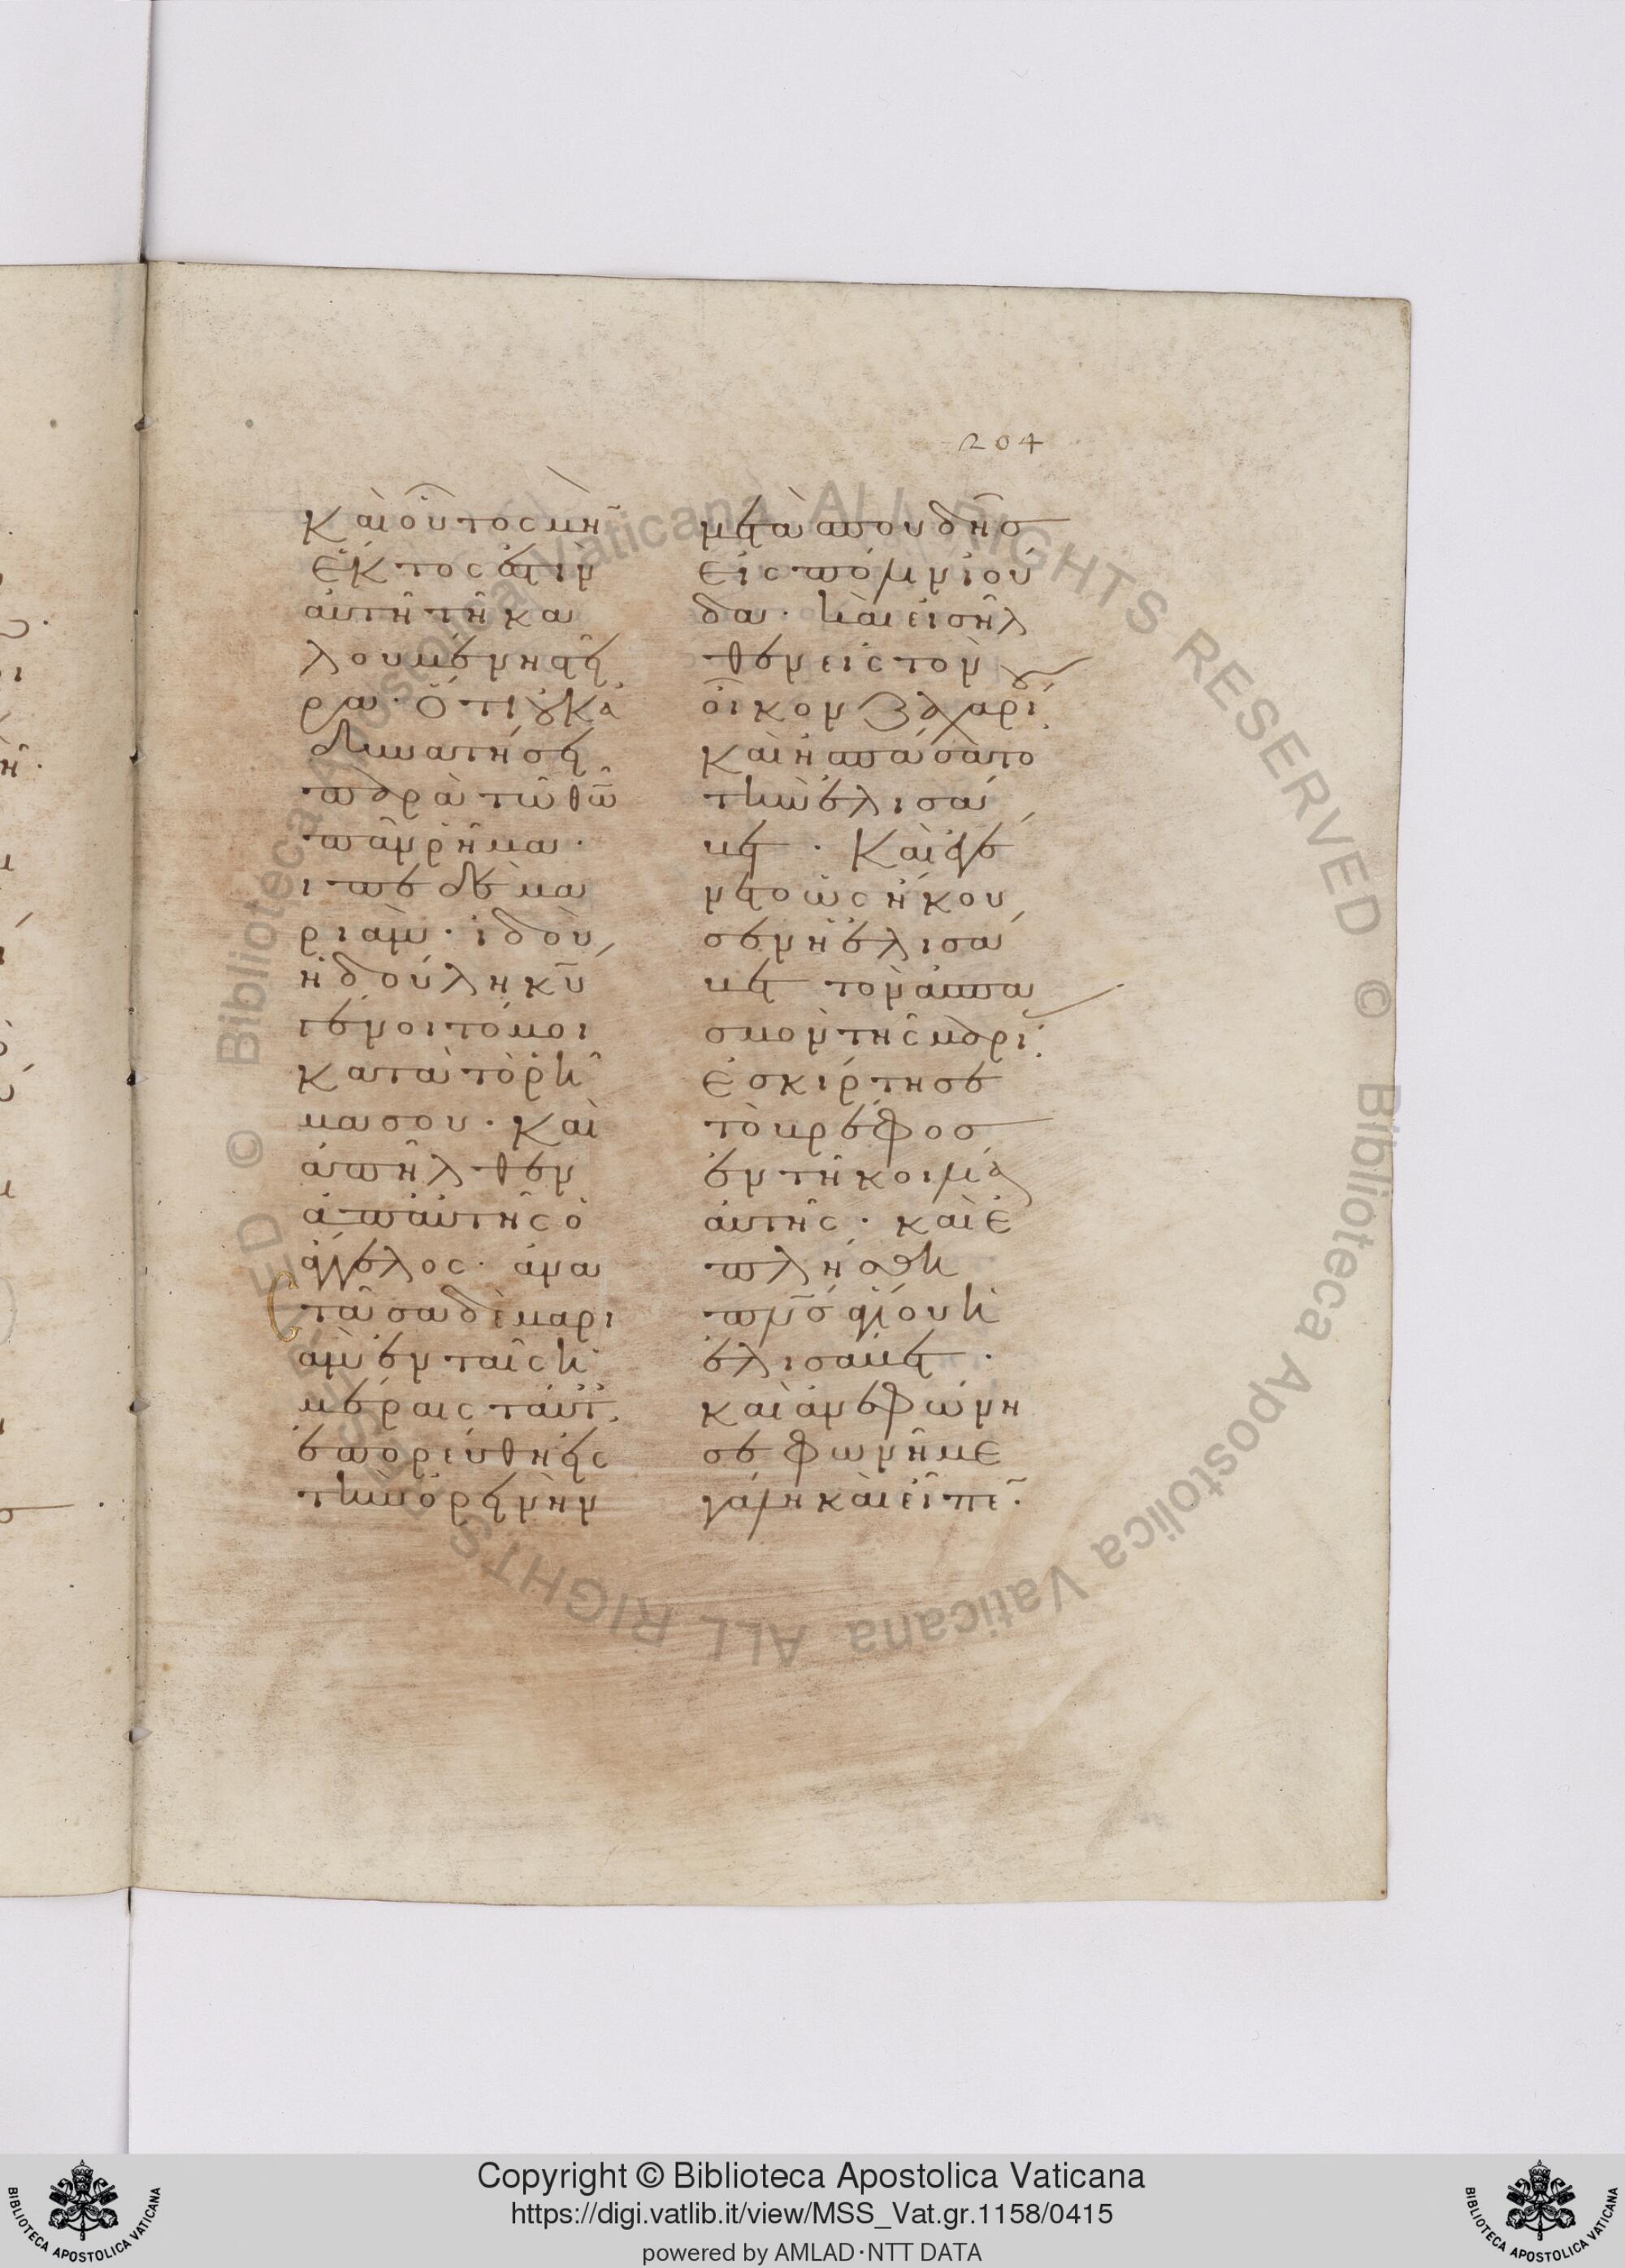 204
Καὶ οὗτος μὴν
ἕκτος ἐστὶν
αὐτῇ τῇ κα
λουμένῃ στεί
ρα· Ὅτι οὐκ ἀ
δυνατήσει
παρὰ τῷ θῶ
πᾶν ῥῆμα·
εἶπε δὲ μα
ριάμ· ἰδοὺ
ἡ δούλη κυ
γένοιτό μοι
κατὰ τὸ ῥῆ
μα σου· Καὶ
ἀπῆλθεν
ἀπ' αὐτῆς ὁ
ἄγγελος· ἀνα
στᾶσα δὲ μαρι
ὰμ ἐν ταῖς ἡ
μέραις ταύτ
ἐπορεύθη εἰς
τὴν ὀρεινὴν
μετὰ σπουδῆσ
εἰς πόλιν ἰού
δα· καὶ εἰσῆλ
θεν εἰς τὸν
οἶκον Ζαχαρί
Καὶ ἠσπάσατο
τὴν ἐλισά
βετ· Καὶ ἐγέ
νετο ὡς ἤκου
σεν ἡ ἐλισά
βετ τὸν ἀσπα
σμὸν τῆς μαρί
ἐσκίρτησε
τὸ βρέφοσ
ἐν τῇ κοιλίᾳ
αὐτῆς· καὶ ἐ
πλήσθη
πνσ ἁγίου ἡ
ἐλισάβετ·
καὶ ἀνεφώνη
σε φωνῇ με
γάλῃ καὶ εἶπε·
Copyright © Biblioteca Apostolica Vaticana
https://digi.vatlib.it/view/MSS_Vat.gr.1158/0415
powered by AMLAD·NTT DATA
BIBLIOTECA APOSTOLICA VATICANA
BIBLIOTECA APOSTOLICA VATICANA
© Biblioteca Apostolica Vaticana ALL RIGHTS RESERVED © Biblioteca Apostolica Vaticana ALL RIGHTS RESERVED